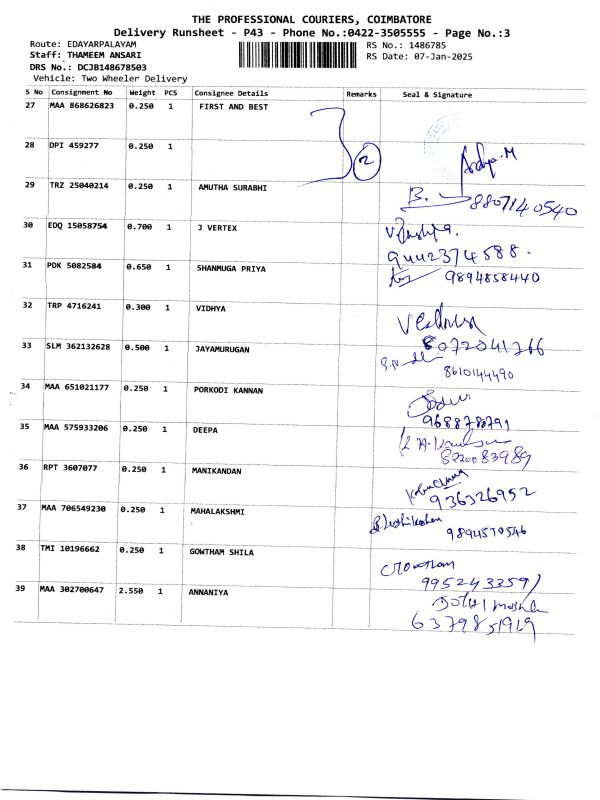 THE PROFESSIONAL COURIERS, COIMBATORE
Delivery Runsheet - P43 - Phone No.:0422-3505555 - Page No.:3
Route: EDAYARPALAYAM RS No.: 1486785
Staff: THAMEEM ANSARI RS Date: 07-Jan-2025
DRS No.: DCJB148678503
Vehicle: Two Wheeler Delivery
S No Consignment No Weight PCS Consignee Details Remarks Seal & Signature
27 MAA 868626823 0.250 1 FIRST AND BEST
28 DPI 459277 0.250 1 2
29 TRZ 25040214 0.250 1 AMUTHA SURABHI B. 8807140540
30 EDQ 15058754 0.700 1 J VERTEX 9442374588.
31 PDK 5082584 0.650 1 SHANMUGA PRIYA 9894858440
32 TRP 4716241 0.300 1 VIDHYA
33 SLM 362132628 0.500 1 JAYAMURUGAN 8072041766
8610144490
34 MAA 651021177 0.250 1 PORKODI KANNAN
9688787791
35 MAA 575933206 0.250 1 DEEPA
8220083989
36 RPT 3607077 0.250 1 MANIKANDAN 936326952
37 MAA 706549230 0.250 1 MAHALAKSHMI 9894530546
38 TMI 10196662 0.250 1 GOWTHAM SHILA Gowtham
9952433591
39 MAA 302700647 2.550 1 ANNANIYA
6379851919